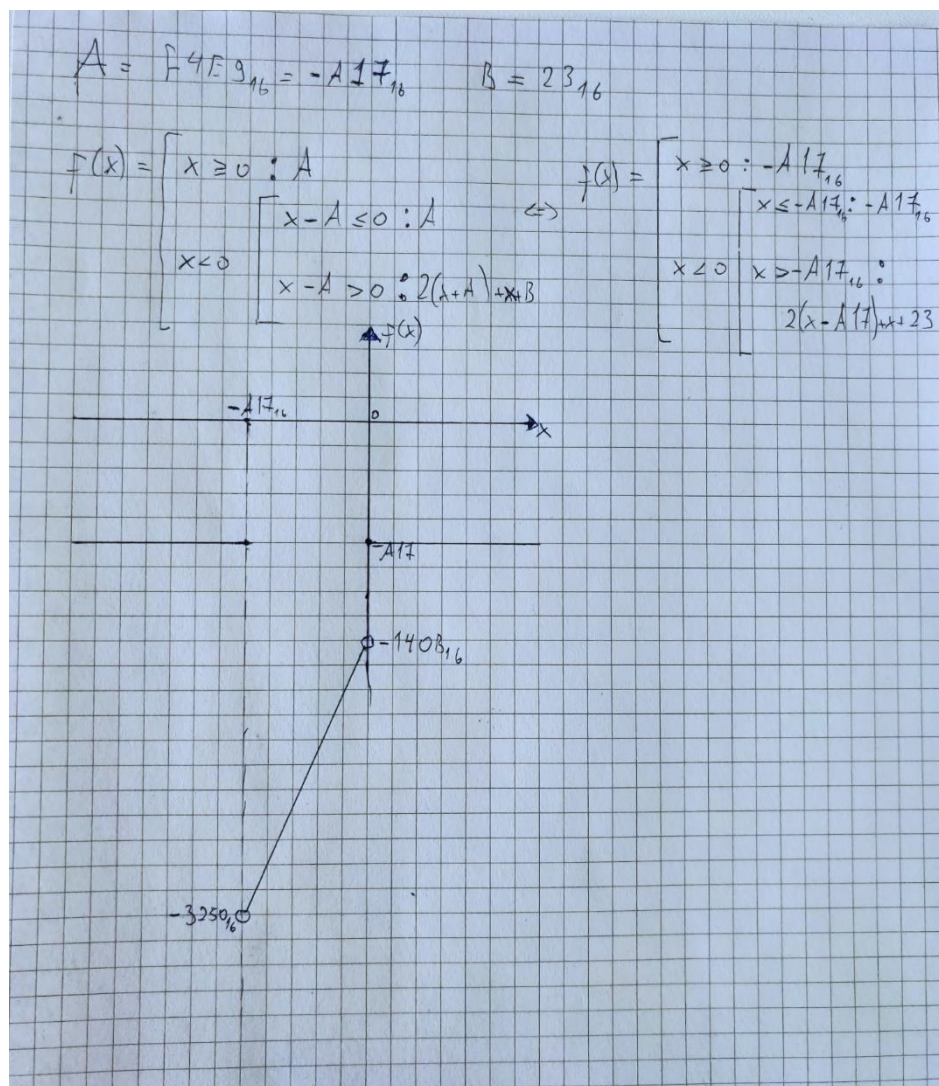 A = F4E9₁₆ = -A17₁₆ B = 23₁₆
f(x) = [ x ≥ 0 : A
x < 0 [ x - A ≤ 0 : A
x - A > 0 : 2(x+A)+x+B
<=>
f(x) = [ x ≥ 0 : -A17₁₆
x < 0 [ x ≤ -A17₁₆ : -A17₁₆
x > -A17₁₆ :
2(x-A17)+x+23
f(x)
-A17₁₆ 0
x
-A17
-140B₁₆
-3250₁₆